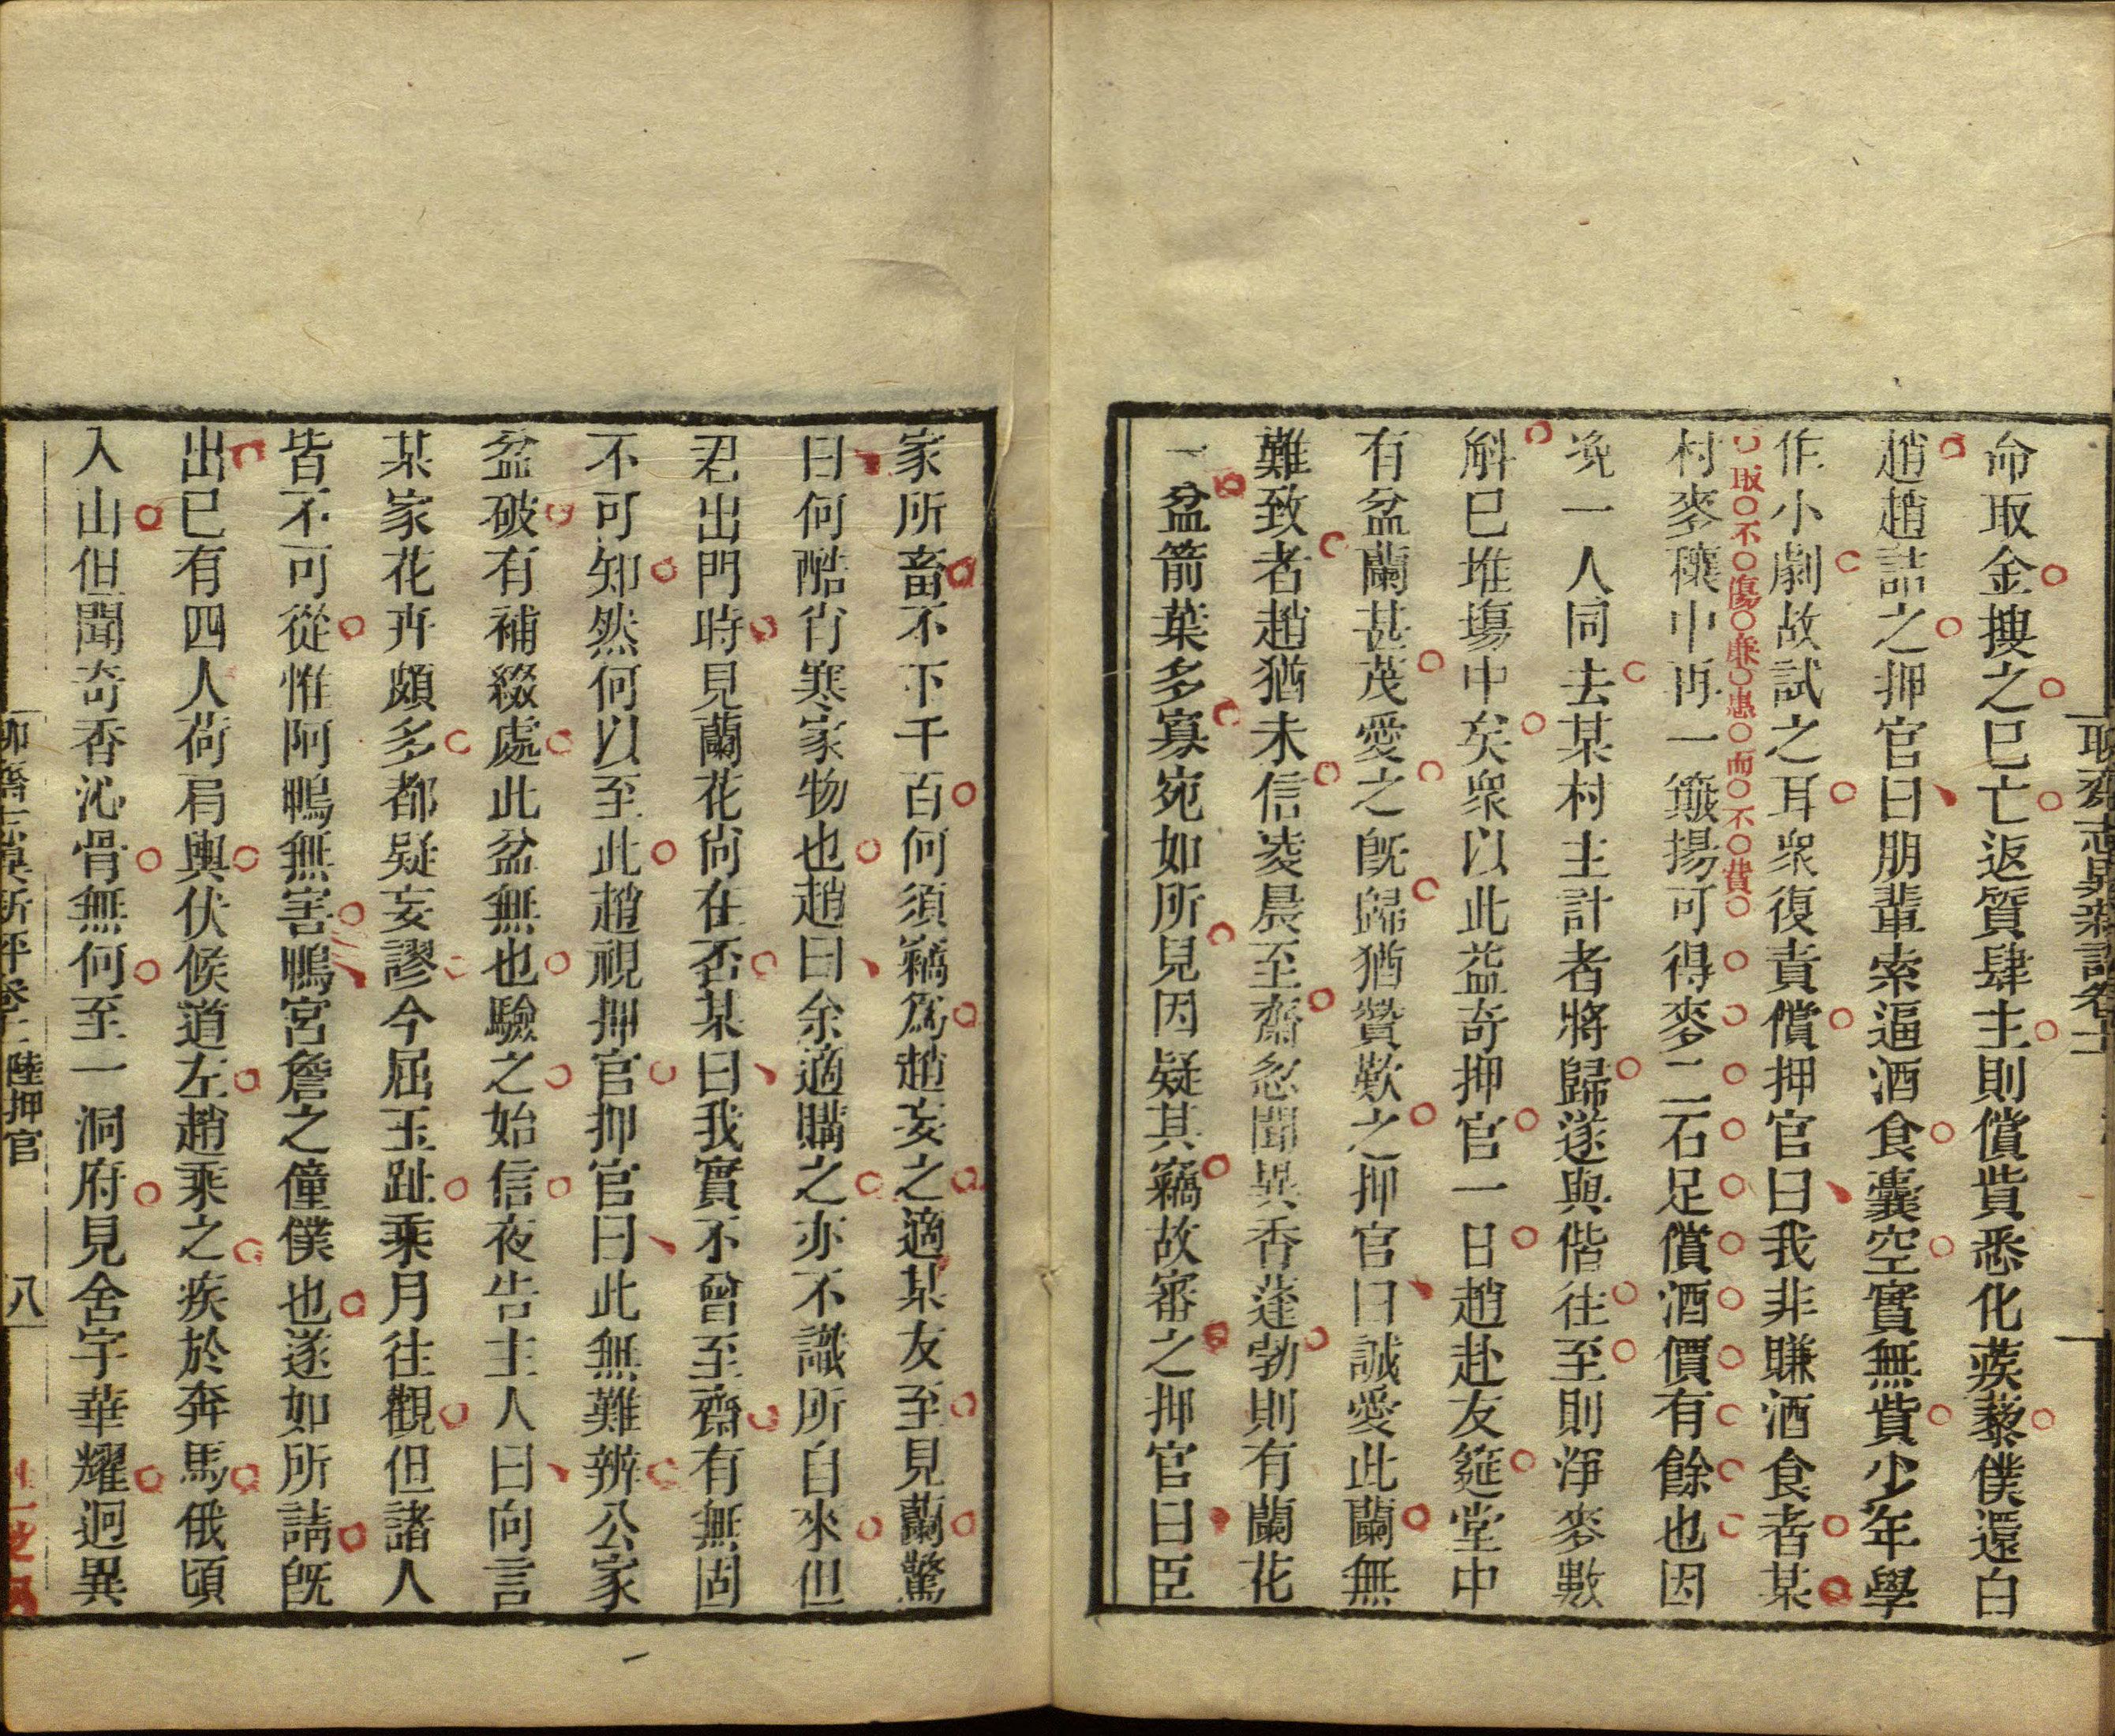 命取金搜之已亡返質肆主則償貲悉化蒺藜僕還白
趙趙詰之押官曰朋輩索逼酒食囊空實無貲少年學
作小劇故試之耳衆復責償押官曰我非賺酒食者某
取不傷廉惠而不費
村麥穰中再一簸揚可得麥二石足償酒價有餘也因
浼一人同去某村主計者將歸遂與偕往至則淨麥數
斛已堆塲中矣衆以此益奇押官一日趙赴友筵堂中
有盆蘭甚茂愛之旣歸猶贊歎之押官曰誠愛此蘭無
難致者趙猶未信凌晨至齋忽聞異香蓬勃則有蘭花
一盆箭葉多寡宛如所見因疑其竊故審之押官曰臣
家所畜不下千百何須竊爲趙妄之適某友至見蘭驚
曰何酷肖寒家物也趙曰余適購之亦不識所自來但
君出門時見蘭花尙在否某曰我實不曾至齋有無固
不可知然何以至此趙視押官押官曰此無難辨公家
盆破有補綴處此盆無也驗之始信夜告主人曰向言
某家花卉頗多都疑妄謬今屈玉趾乘月往觀但諸人
皆不可從惟阿鴨無害鴨宮詹之僮僕也遂如所請旣
出已有四人荷肩輿伏候道左趙乘之疾於奔馬俄頃
入山但聞奇香沁骨無何至一洞府見舍宇華耀迥異
陸押官
八